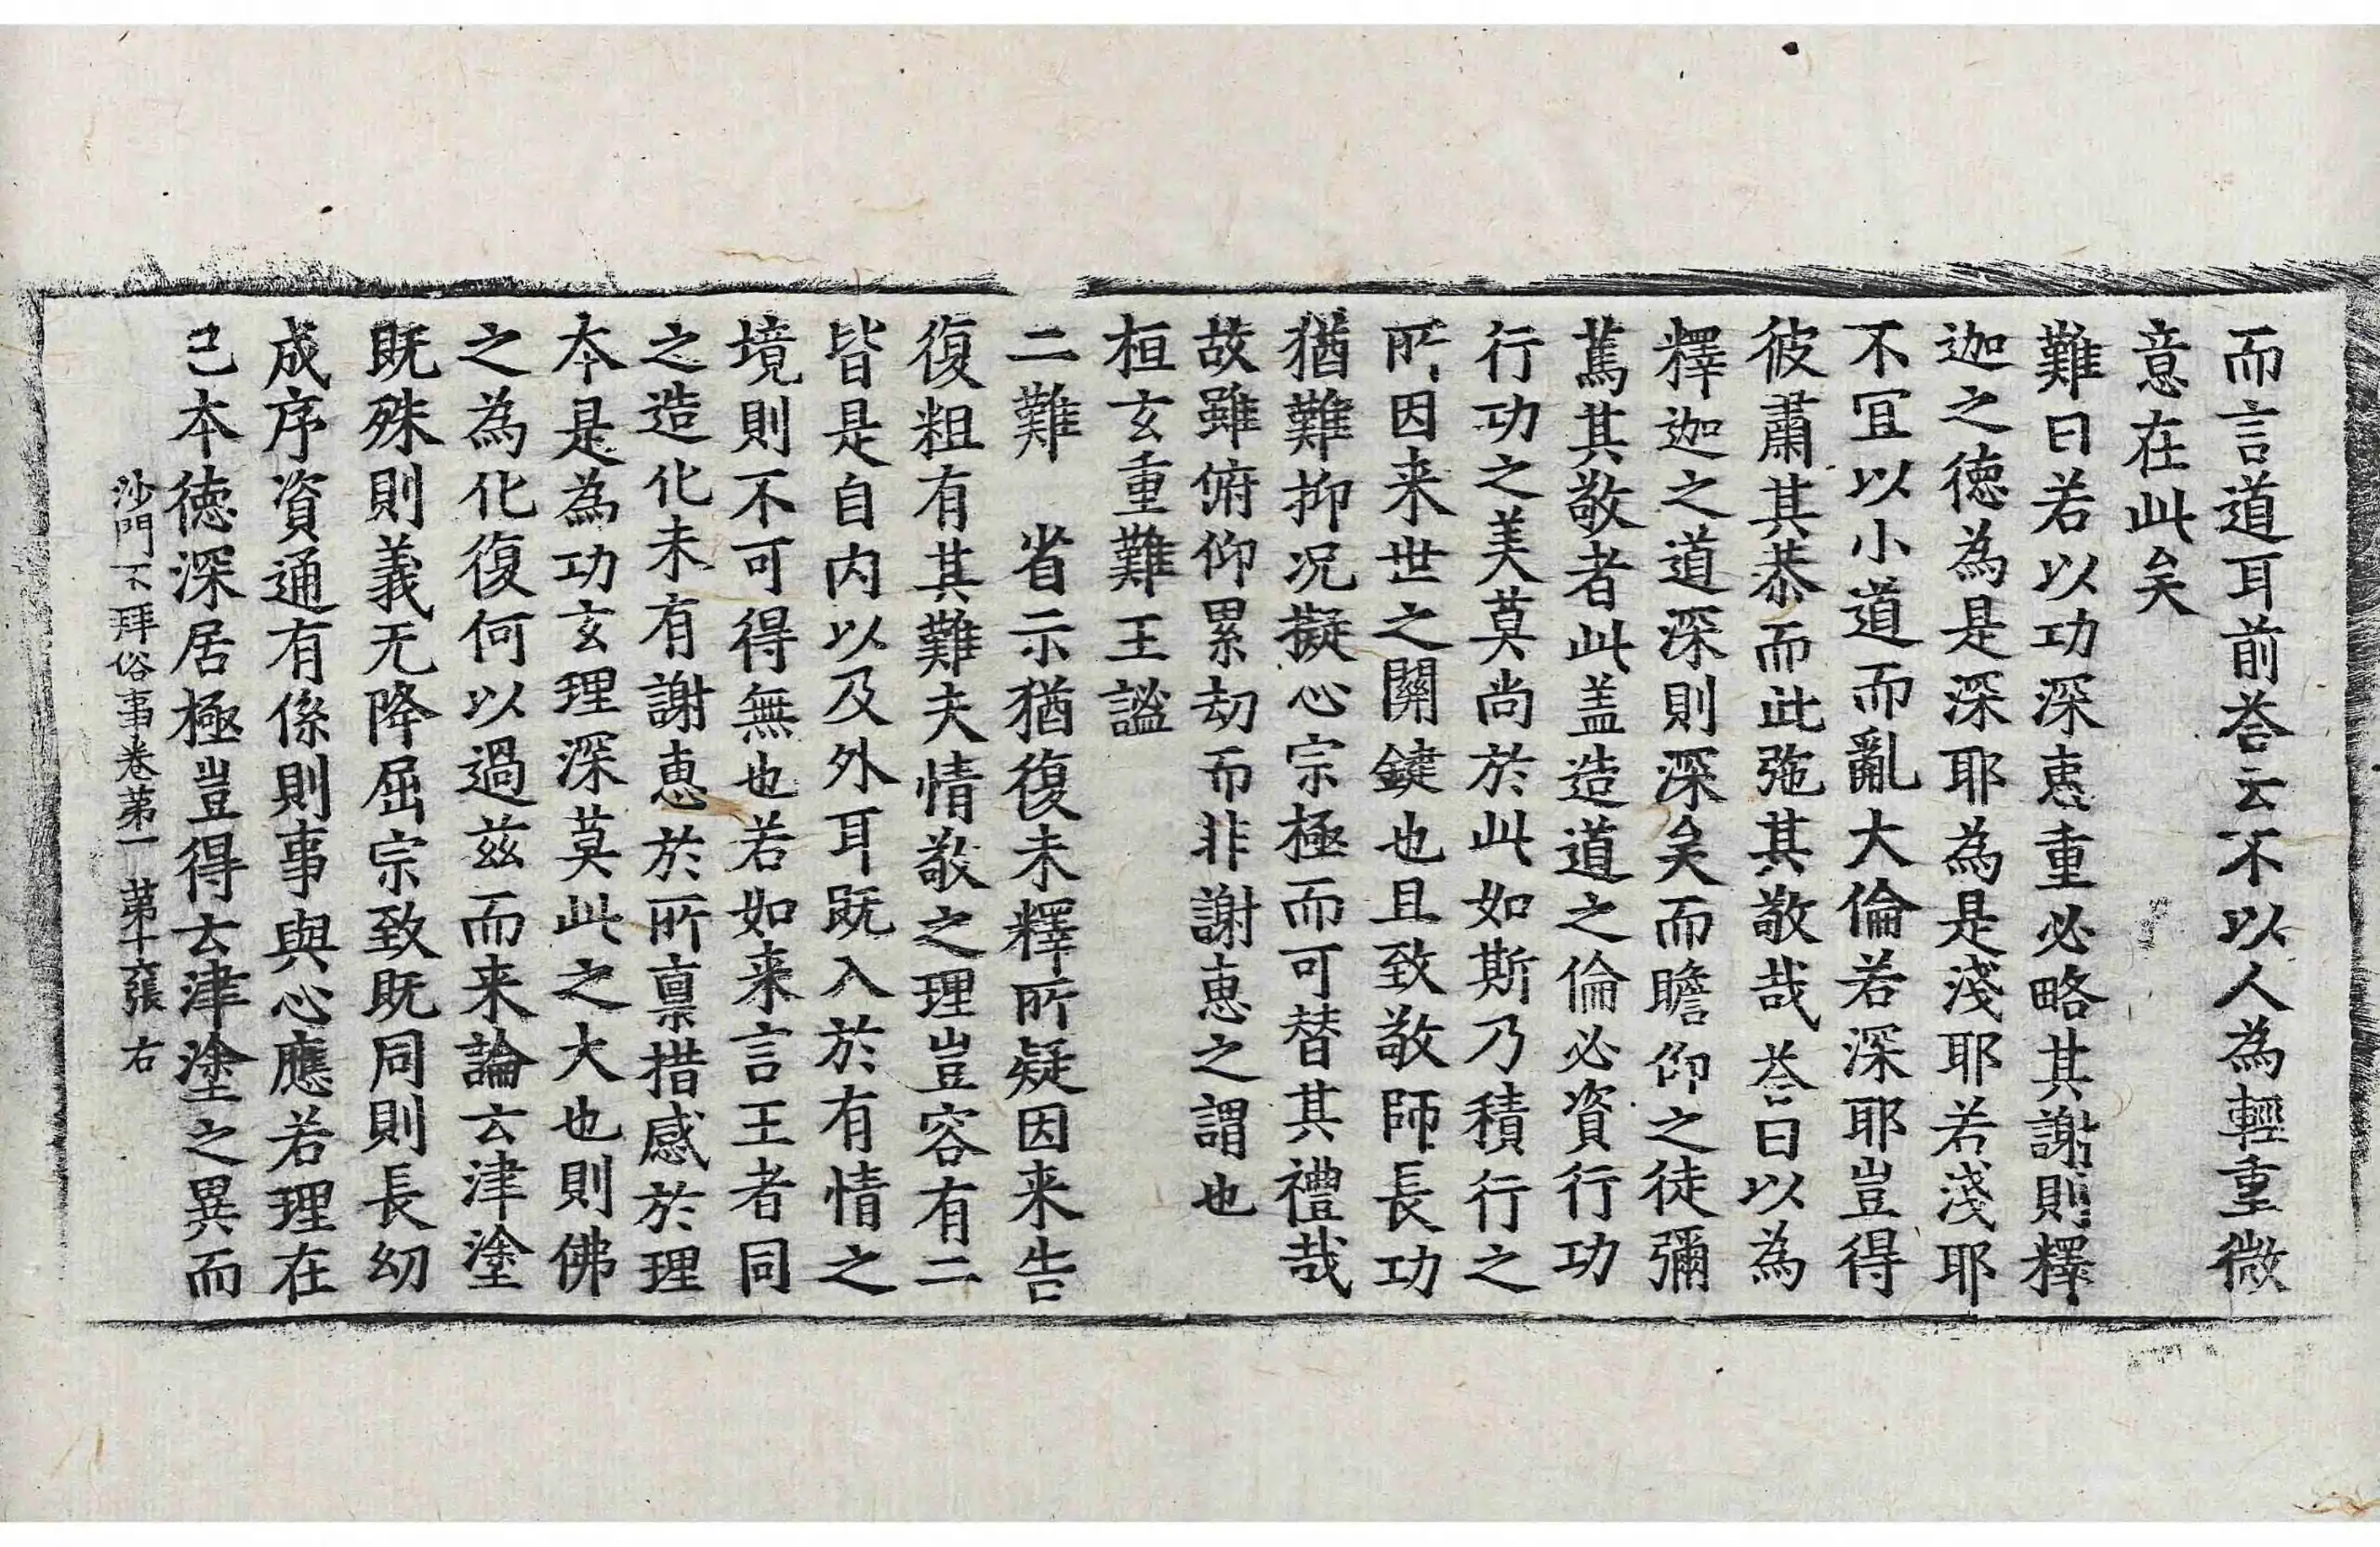 而言道耳前荅云不以人為輕重微
意在此矣
難曰若以功深惠重必略其謝則釋
迦之徳為是深耶為是淺耶若淺耶
不冝以小道而亂大倫若深耶豈得
彼肅其恭而此弛其敬哉荅曰以為
釋迦之道深則深矣而瞻仰之徒彌
篤其敬者此盖造道之倫必資行功
行功之美莫尚於此如斯乃積行之
所因来世之關鍵也且致敬師長功
猶難抑况擬心宗極而可替其禮哉
故雖俯仰累劫而非謝惠之謂也
桓玄重難王謐
二難　省示猶復未釋所疑因来告
復粗有其難夫情敬之理豈容有二
皆是自内以及外耳既入於有情之
境則不可得無也若如来言王者同
之造化未有謝惠於所稟措感於理
本是為功玄理深莫此之大也則佛
之為化復何以過兹而来論云津塗
既殊則義无降屈宗致既同則長㓜
成序資通有係則事與心應若理在
己本徳深居極豈得云津塗之異而
沙門不拜俗事卷第一　第十張　右